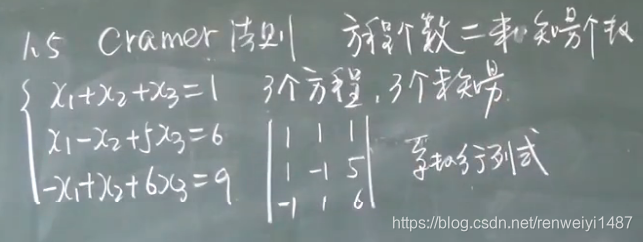 1.5 Cramer 法则 方程个数=未知量个数
x₁+x₂+x₃=1 3个方程,3个未知量
x₁-x₂+5x₃=6
-x₁+x₂+6x₃=9
1 1 1
1 -1 5
-1 1 6
系数行列式
https://blog.csdn.net/renweiyi1487